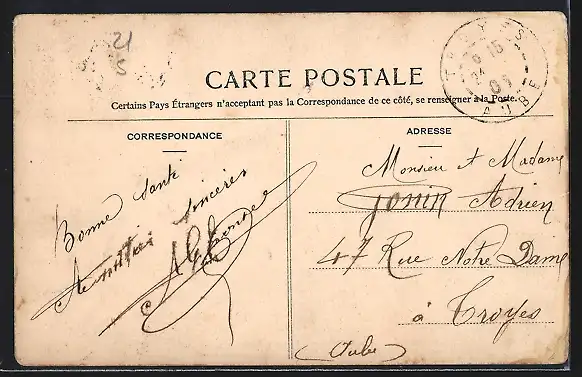 21
5
TROYES
6 15
AUBE
CARTE POSTALE
Certains Pays Étrangers n'acceptant pas la Correspondance de ce côté, se renseigner à la Poste.
CORRESPONDANCE
Bonne Santé
sincères
ADRESSE
Monsieur et Madame
Jonin Adrien
47 Rue Notre Dame
à Troyes
Aube